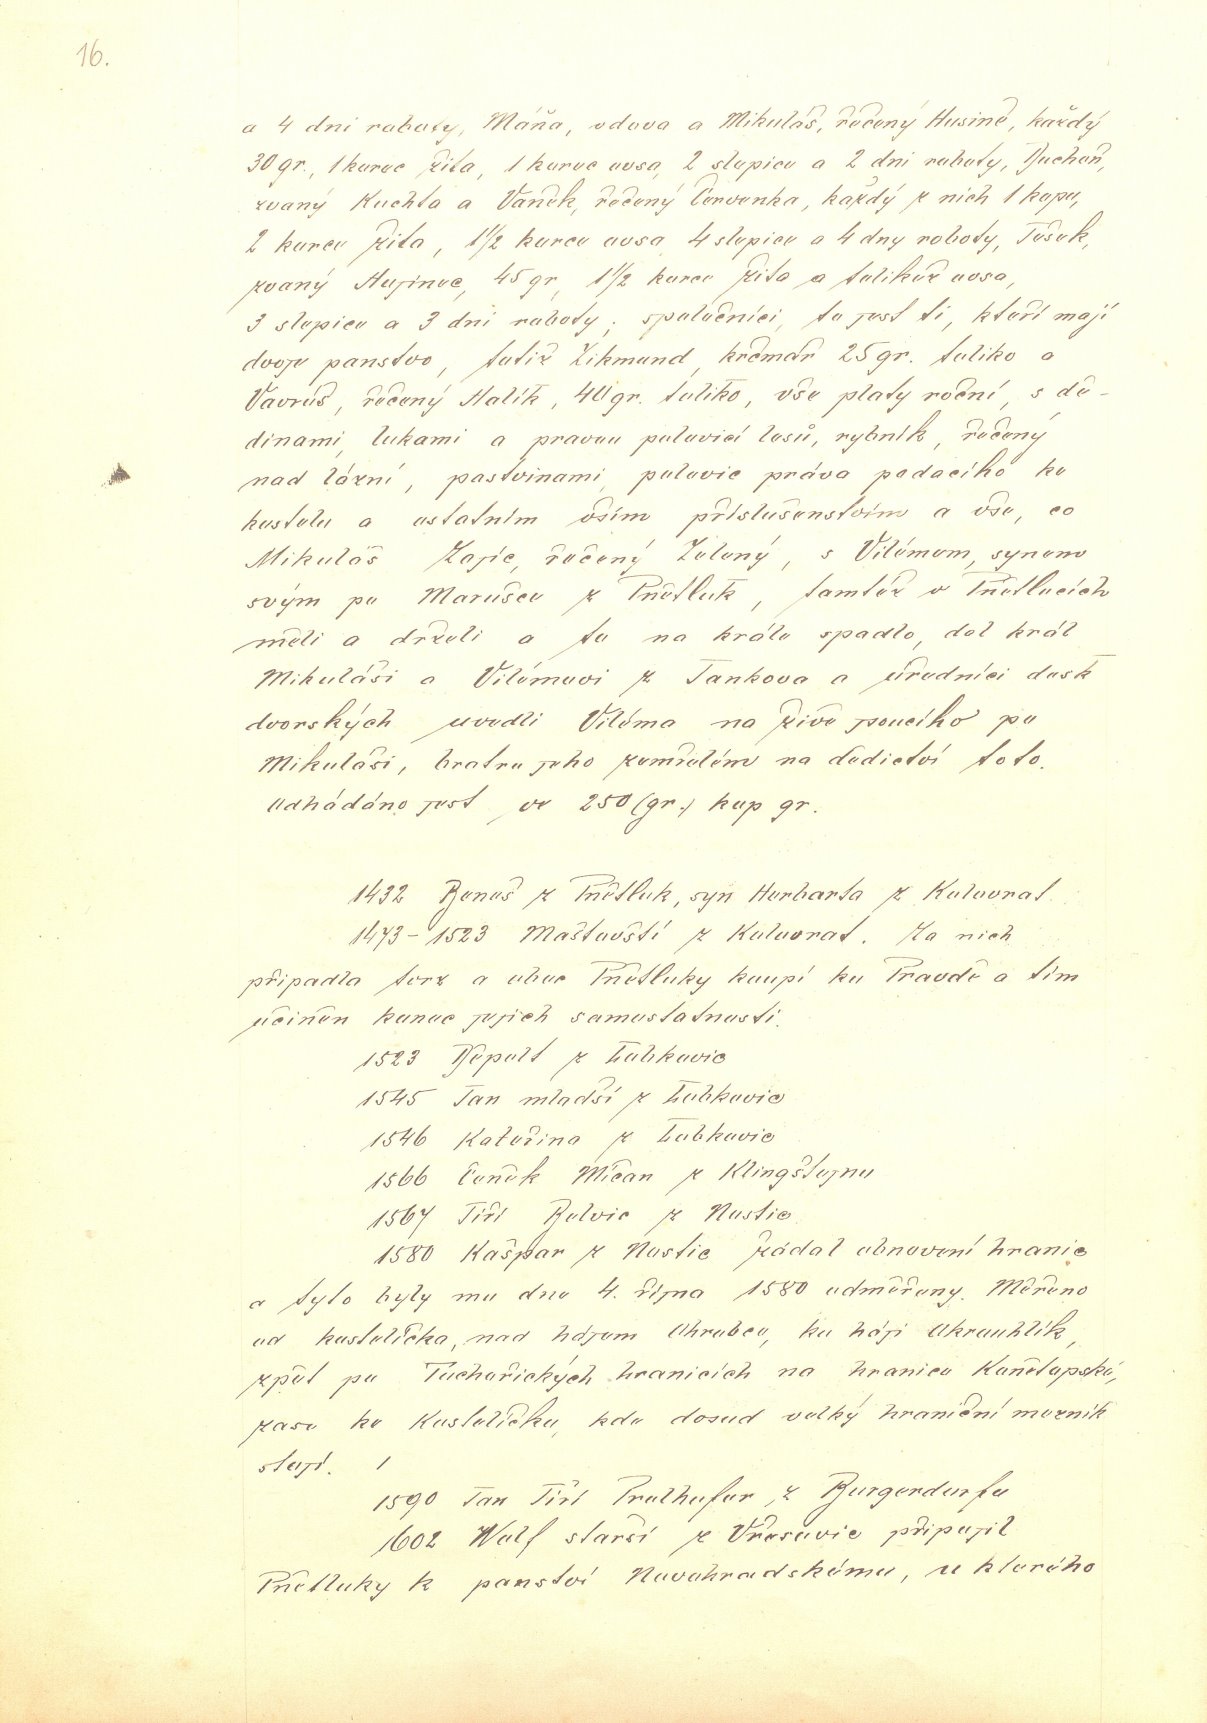 16.
a 4 dni roboty, Máňa, vdova a Mikuláš, řečený Husině, každý
30 gr., 1 korec žita, 1 korec ovsa, 2 slepice a 2 dni roboty, Duchoň,
zvaný Kuchta a Vaněk, řečený Červenka, každý z nich 1 kopu,
2 korce žita, 1½ korce ovsa, 4 slepice a 4 dny roboty, Ješek,
zvaný Hujinec, 45 gr, 1½ korce žita a tolikéž ovsa,
3 slepice a 3 dni roboty; společníci, to jest ti, kteří mají
dvoje panstvo, totiž Zikmund, krčmář 25 gr. toliko a
Vavruš, řečený Malík, 40 gr. toliko, vše platy roční, s dě-
dinami, lukami a pravou polovicí lesů, rybník, řečený
nad lázní, pastvinami, polovic práva podacího ke
kostelu a ostatním vším příslušenstvím a vše, co
Mikuláš Zajíc, řečený Zelený, s Vilémem, synem
svým po Marušce z Pnětluk, tamtéž v Pnětlucích
měli a drželi a to na krále spadlo, dal král
Mikuláši a Vilémovi z Jankova a úředníci desk
dvorských uvedli Viléma na živě jsoucího po
Mikuláši, bratru jeho zemřelém na dědictví toto.
Odhádáno jest ve 250 (gr.) kop gr.
1432 Beneš z Pnětluk, syn Herbarta z Kolovrat.
1473-1523 Maštovští z Kolovrat. Za nich
připadla tvrz a obec Pnětluky koupí ku Pravdě a tím
učiněn konec jejich samostatnosti.
1523 Děpolt z Lobkovic
1545 Jan mladší z Lobkovic
1546 Kateřina z Lobkovic
1566 Čeněk Míčan z Klingštejnu
1567 Jiří Belvic z Nostic
1580 Kašpar z Nostic žádal obnovení hranic
a tyto byly mu dne 4. října 1580 odměřeny. Měřeno
od kostelíčka, nad hájem Ohrobce, ku háji Okrouhlík,
zpět po Tuchořických hranicích na hranice Konětopské,
zase ke kostelíčku, kde dosud velký hraniční mezník
stojí.
1590 Jan Jiří Prolhofer z Burgerdorfu
1602 Wolf starší z Vřesovic připojil
Pnětluky k panství Novohradskému, u kterého